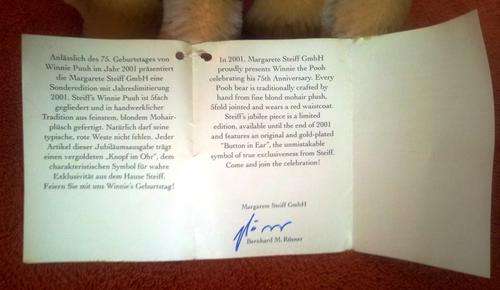 Anlässlich des 75. Geburtstages von
Winnie Puuh im Jahr 2001 präsentiert
die Margarete Steiff GmbH eine
Sonderedition mit Jahreslimitierung
2001. Steiff's Winnie Puuh ist 5fach
gegliedert und in handwerklicher
Tradition aus feinstem, blondem Mohair-
plüsch gefertigt. Natürlich darf seine
typische, rote Weste nicht fehlen. Jeder
Artikel dieser Jubiläumsausgabe trägt
einen vergoldeten „Knopf im Ohr", dem
charakteristischen Symbol für wahre
Exklusivität aus dem Hause Steiff.
Feiern Sie mit uns Winnie's Geburtstag!
In 2001, Margarete Steiff GmbH
proudly presents Winnie the Pooh
celebrating his 75th Anniversary. Every
Pooh bear is traditionally crafted by
hand from fine blond mohair plush,
5fold jointed and wears a red waistcoat.
Steiff's jubilee piece is a limited
edition, available until the end of 2001
and features an original and gold-plated
"Button in Ear", the unmistakable
symbol of true exclusiveness from Steiff.
Come and join the celebration!
Margarete Steiff GmbH
Bernhard M. Rösner